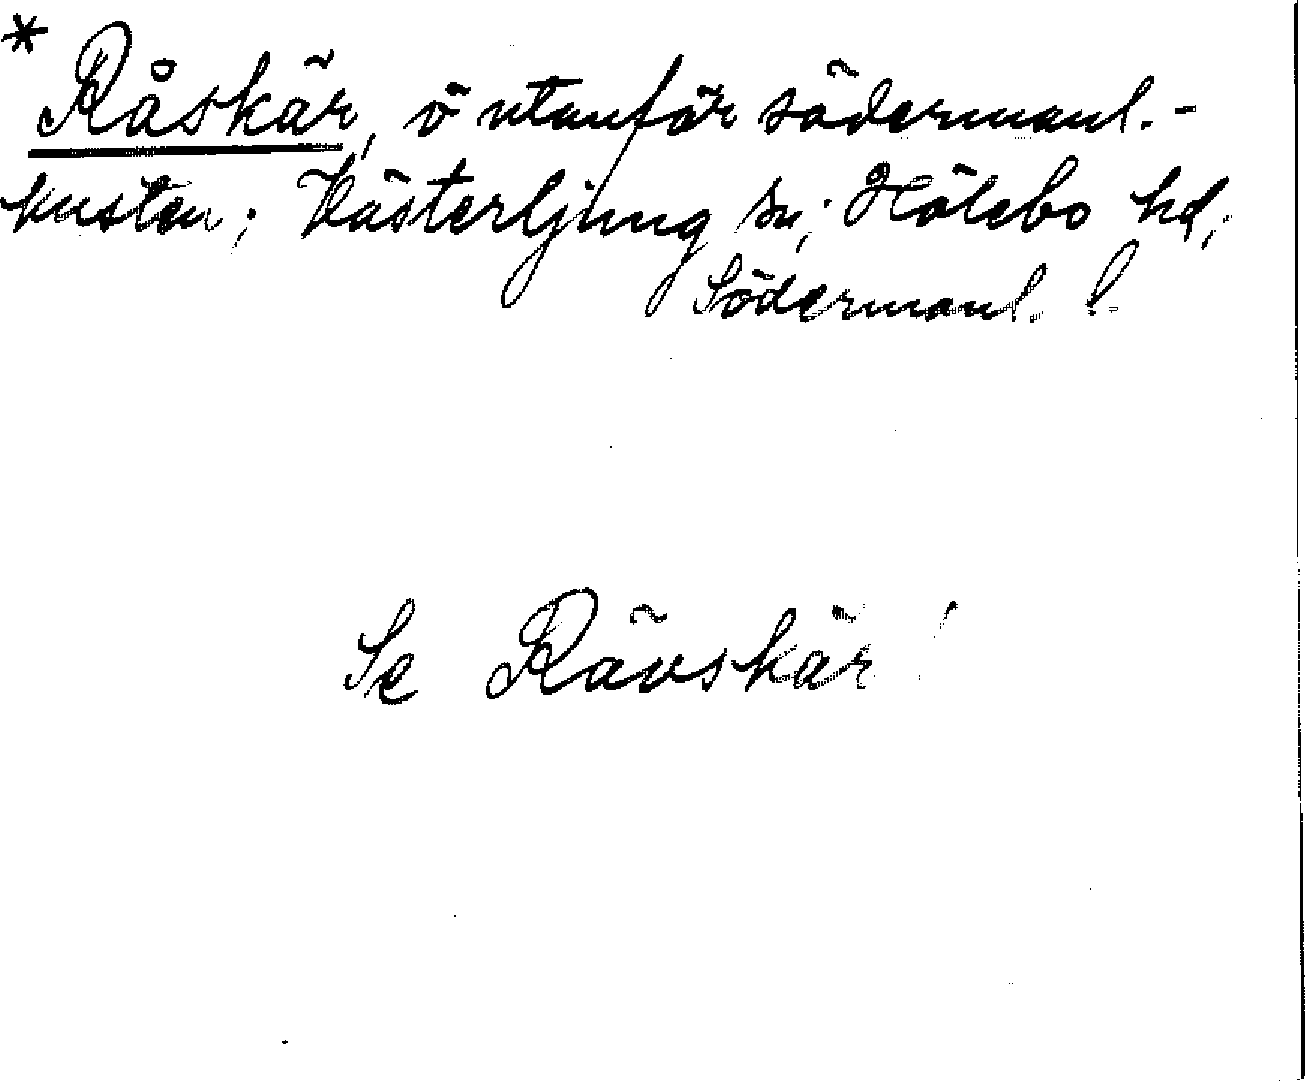 * Råskär, ö utanför södermanl.-
kusten; Västerljung sn; Hölebo hd;
Södermanl. l.
Se Rävskär!